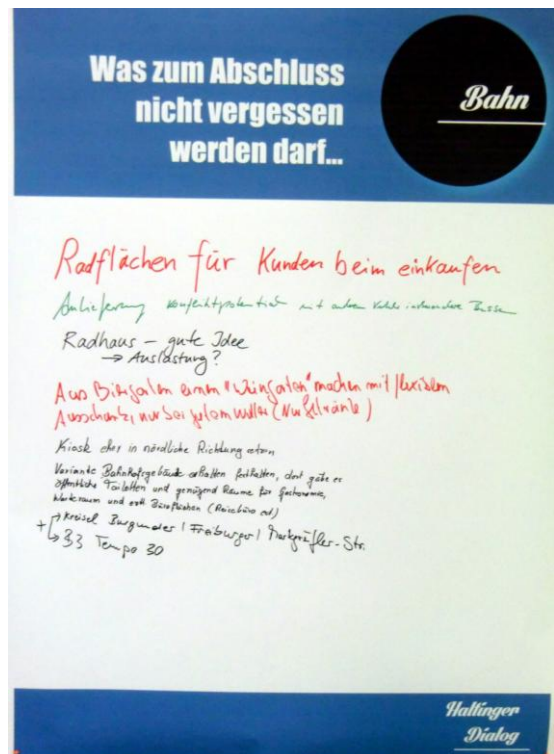 Was zum Abschluss
nicht vergessen
werden darf...
Bahn
Radflächen für Kunden beim einkaufen
Anlieferung konfliktpotential mit anderem Verkehr insbesondere Bussen
Radhaus – gute Idee
→ Auslastung?
Aus Biergarten einen "Weingarten" machen mit flexiblem
Ausschank, nur bei gutem Wetter (Nur Getränke)
Kiosk eher in nördliche Richtung setzen
Variante Bahnhofsgebäude erhalten festhalten, dort gäbe es
öffentliche Toiletten und genügend Räume für Gastronomie,
Warteraum und evtl. Büroflächen (Reisebüro etc.)
+ → Kreisel Burgunder / Freiburger / Markgräfler-Str.
→ B3 Tempo 30
Haltinger
Dialog